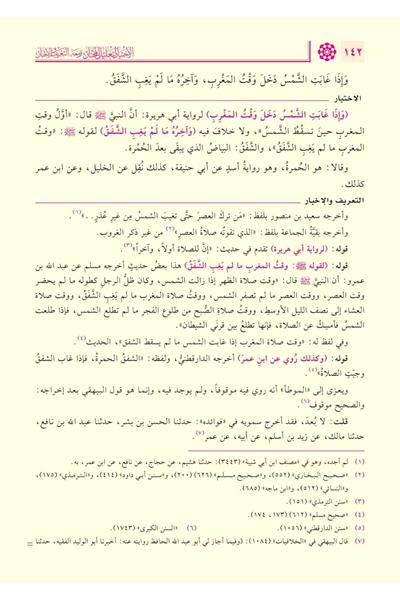 ١٤٢
وَإِذَا غَابَتِ الشَّمْسُ دَخَلَ وَقْتُ المَغْرِبِ، وَآخِرُهُ مَا لَمْ يَغِبِ الشَّفَقُ.
الاختيار
(وَإِذَا غَابَتِ الشَّمْسُ دَخَلَ وَقْتُ المَغْرِبِ) لرواية أبي هريرة: أنَّ النبيَّ ﷺ قال: «أوَّلُ وقتِ
المغربِ حينَ تسقُطُ الشَّمسُ»، ولا خلافَ فيه (وَآخِرُهُ مَا لَمْ يَغِبِ الشَّفَقُ) لقوله ﷺ: «وقتُ
المغربِ ما لم يَغِبِ الشَّفقُ»، والشَّفَقُ: البياضُ الذي يبقى بعدَ الحُمْرة.
وقالا: هو الحُمرةُ، وهو روايةُ أسدٍ عن أبي حنيفة، كذلك نُقِل عن الخليل، وعن ابن عمر
كذلك.
التعريف والإخبار
وأخرجه سعيد بن منصور بلفظ: «مَن تركَ العصرَ حتَّى تغيبَ الشمسُ مِن غيرِ عُذرٍ..»(١).
وأخرجه بقيَّةُ الجماعة بلفظ: «الذي تفوتُه صلاةُ العصرِ»(٢) من غير ذكر الغروب.
قوله: (لرواية أبي هريرة) تقدم في حديث: «إنَّ للصلاة أولاً، وآخراً»(٣).
قوله: (لقوله ﷺ: وقتُ المغربِ ما لم يَغِبِ الشَّفَقُ) هذا بعضُ حديثٍ أخرجه مسلم عن عبد الله بن
عمرو: أن النبيَّ ﷺ قال: «وقت صلاة الظهر إذا زالت الشمس، وكان ظلُّ الرجل كطوله ما لم يحضر
وقت العصر، ووقت العصر ما لم تصفر الشمس، ووقت صلاة المغرب ما لم يَغِبِ الشَّفَقُ، ووقت صلاة
العشاء إلى نصف الليل الأوسط، ووقتُ صلاةِ الصُّبح من طلوع الفجر ما لم تطلع الشمس، فإذا طلعت
الشمسُ فأمسِكْ عن الصلاة، فإنها تطلعُ بين قرني الشيطان».
وفي لفظ له: «وقت صلاة المغرب إذا غابت الشمس ما لم يسقط الشفق»، الحديث(٤).
قوله: (وكذلك رُوي عن ابنِ عمرَ) أخرجه الدارقطنيُّ، ولفظه: «الشفقُ الحمرةُ، فإذا غاب الشفقُ
وجبَتِ الصلاةُ»(٥).
ويعزى إلى «الموطأ» أنه روي فيه موقوفاً، ولم يوجد فيه، وإنما هو قول البيهقي بعد إخراجه:
والصحيح موقوف(٦).
قلت: لا بُعدَ، فقد أخرج سمويه في «فوائده»: حدثنا الحسن بن بشر، حدثنا عبد الله بن نافع،
حدثنا مالك، عن زيد بن أسلم، عن أبيه، عن عمر(٧).
(١) لم أجده، وهو في «مصنف ابن أبي شيبة» (٣٤٤٣): حدثنا هشيم، عن حجاج، عن نافع، عن ابن عمر، به.
(٢) «صحيح البخاري» (٥٥٢)، و«صحيح مسلم» (٦٢٦) (٢٠٠)، و«سنن أبي داود» (٤١٤)، و«الترمذي» (١٧٥)،
و«النسائي» (٥١٢)، و«ابن ماجه» (٦٨٥).
(٣) «سنن الترمذي» (١٥١).
(٤) «صحيح مسلم» (٦١٢) (١٧٣، ١٧٤).
(٥) «سنن الدارقطني» (١٠٥٦). (٦) «السنن الكبرى» (١٧٤٣).
(٧) قال البيهقي في «الخلافيات» (١٠٨٤): (وفيما أجاز لي أبو عبد الله الحافظ روايته عنه: أخبرنا أبو الوليد الفقيه، حدثنا =